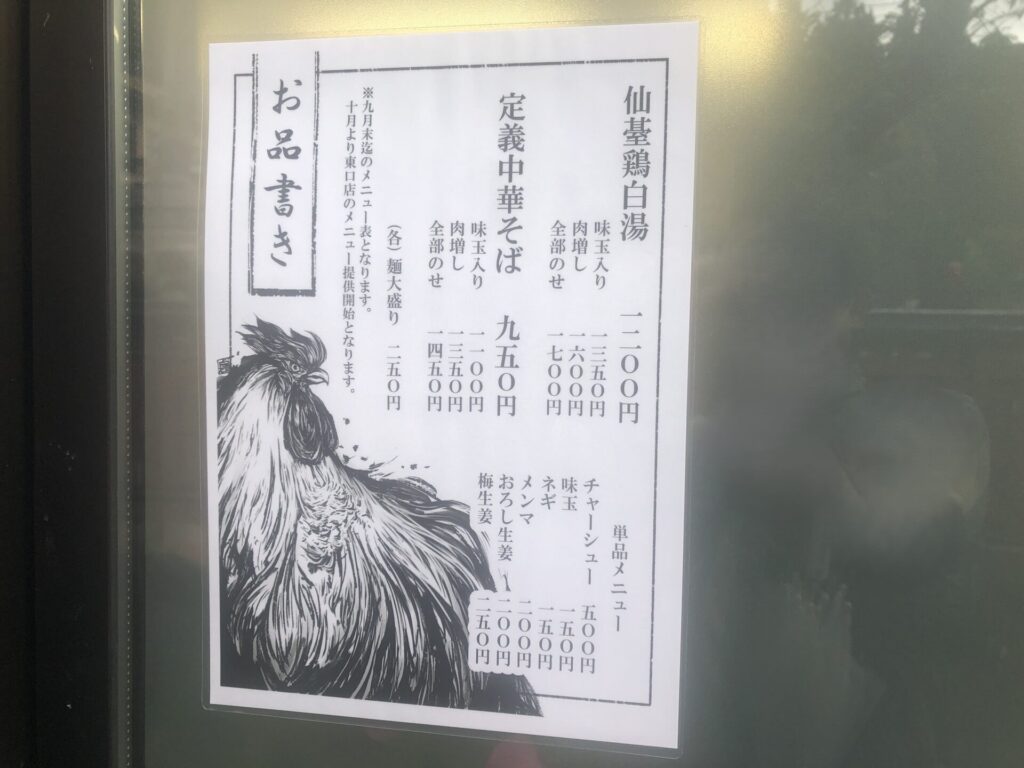 仙臺鶏白湯 一二〇〇円
味玉入り 一三五〇円
肉増し 一六〇〇円
全部のせ 一七〇〇円
定義中華そば 九五〇円
味玉入り 一一〇〇円
肉増し 一三五〇円
全部のせ 一四五〇円
(各)麺大盛り 二五〇円
※九月末迄のメニュー表となります。
十月より東口店のメニュー提供開始となります。
お品書き
単品メニュー
チャーシュー 五〇〇円
味玉 一五〇円
ネギ 一五〇円
メンマ 二〇〇円
おろし生姜 二〇〇円
梅生姜 二五〇円